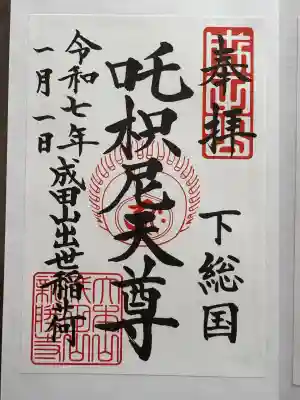 奉拝
下総国
吒枳尼天尊
成田山出世稲荷
令和七年
一月一日